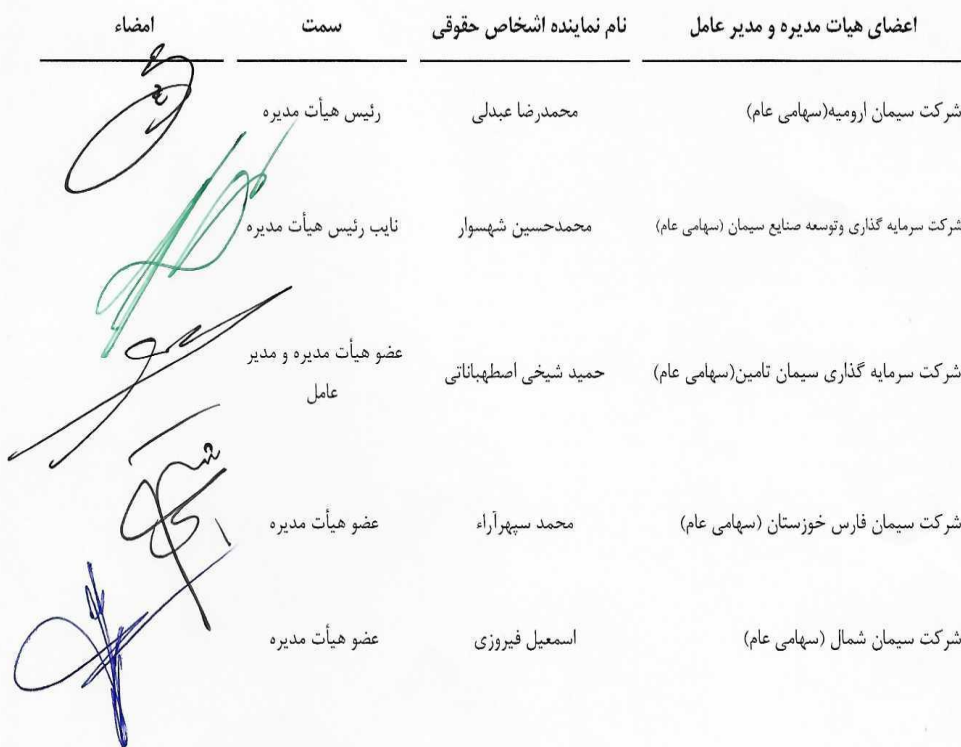 اعضای هیات مدیره و مدیر عامل نام نماینده اشخاص حقوقی سمت امضاء
شرکت سیمان ارومیه(سهامی عام) محمدرضا عبدلی رئیس هیأت مدیره
شرکت سرمایه گذاری وتوسعه صنایع سیمان (سهامی عام) محمدحسین شهسوار نایب رئیس هیأت مدیره
شرکت سرمایه گذاری سیمان تامین(سهامی عام) حمید شیخی اصطهباناتی عضو هیأت مدیره و مدیر
عامل
شرکت سیمان فارس خوزستان (سهامی عام) محمد سپهرآراء عضو هیأت مدیره
شرکت سیمان شمال (سهامی عام) اسمعیل فیروزی عضو هیأت مدیره